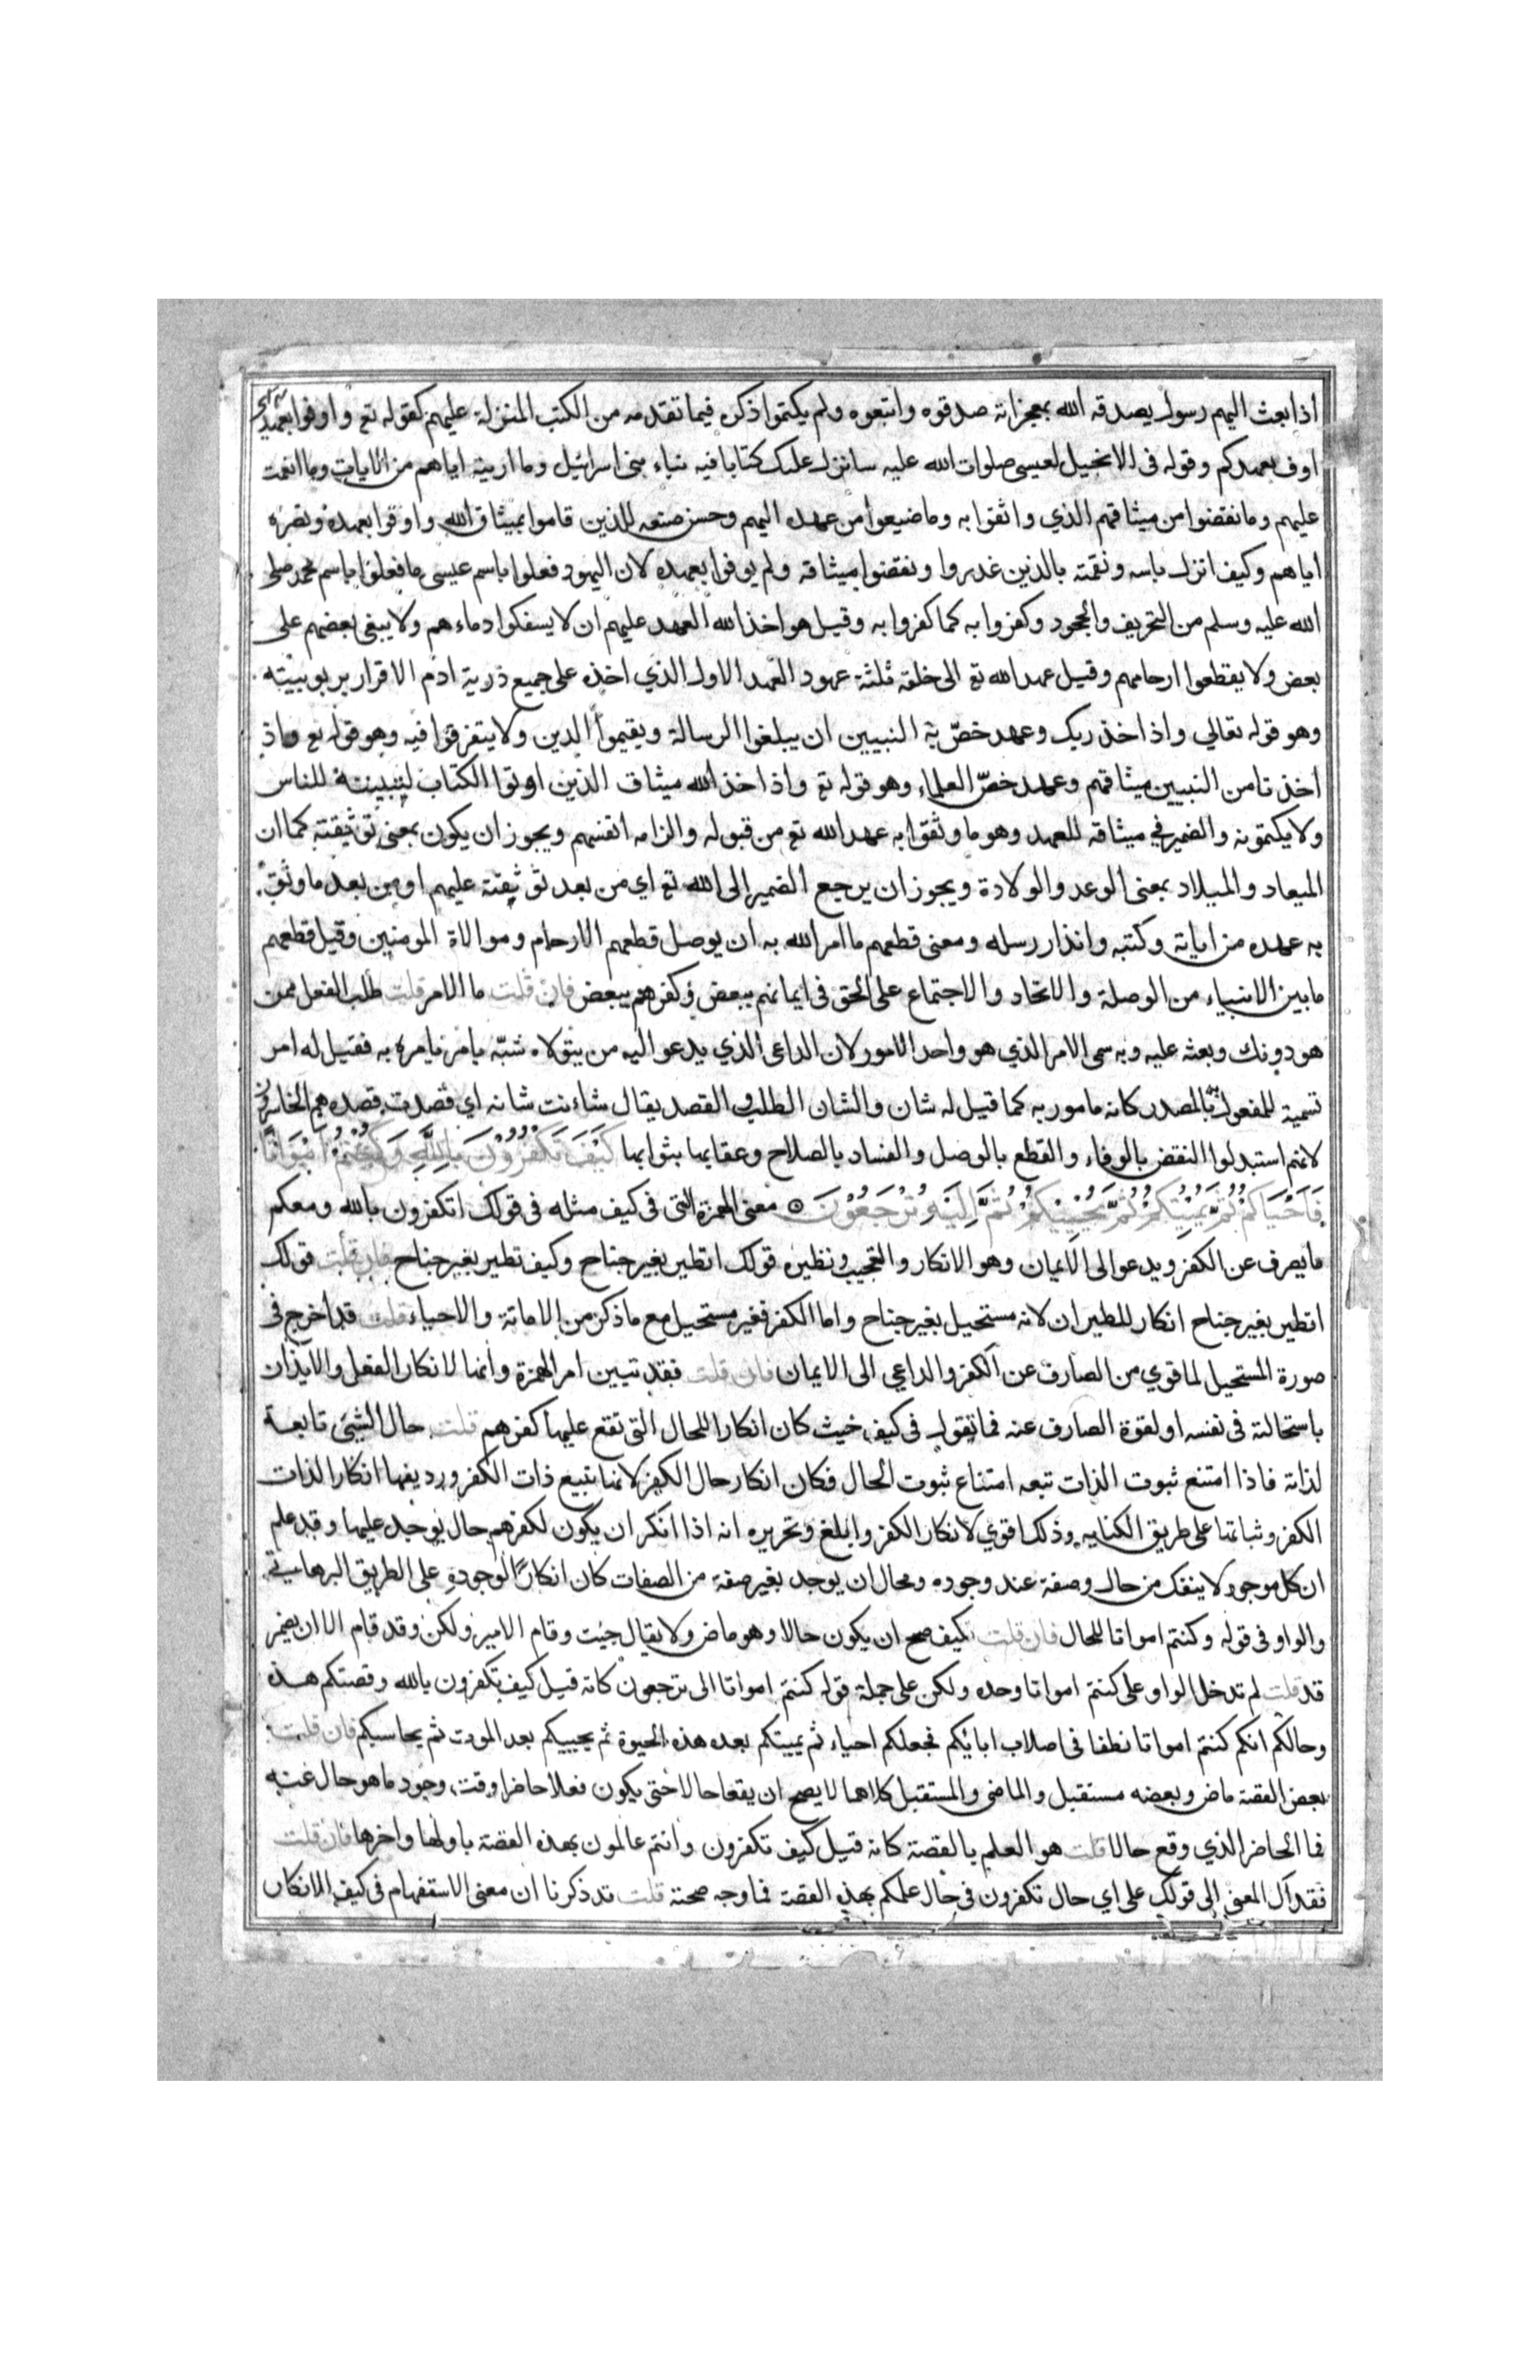 اذا بعث اليهم رسول يصدقه الله بمعجزاته صدقوه واتبعوه ولم يكتموا ذكره فيما تقدمه من الكتب المنزلة عليهم كقوله تع واوفوا بعهدي
اوف بعهدكم وقوله فى الانجيل لعيسى صلوات الله عليه سانزل عليك كتابا فيه نباء بنى اسرائيل وما اريته اياهم من الايات وما انعمت
عليهم وما نقضوا من ميثاقهم الذي واثقوا به وما ضيعوا من عهده اليهم وحسن صنعه للذين قاموا بميثاق الله واوفوا بعهده ونصره
اياهم وكيف انزل باسه ونقمته بالذين غدروا ونقضوا ميثاقه ولم يوفوا بعهده لان اليهود فعلوا باسم عيسى ما فعلوا باسم محمد صلى
الله عليه وسلم من التحريف والجحود وكفروا به كما كفروا به وقيل هو اخذ الله العهد عليهم ان لا يسفكوا دماءهم ولا يبغى بعضهم على
بعض ولا يقطعوا ارحامهم وقيل عهد الله تع الى خلقه ثلثة عهود العهد الاول الذي اخذه على جميع ذرية ادم الاقرار بربوبيته
وهو قوله تعالي واذ اخذ ربك وعهد خصّ به النبيين ان يبلغوا الرسالة ويقيموا الدين ولا يتفرقوا فيه وهو قوله تع واذ
اخذنا من النبيين ميثاقهم وعهد خصّ العلماء وهو قوله تع واذ اخذ الله ميثاق الذين اوتوا الكتاب لتبيننه للناس
ولا يكتمونه والضمير في ميثاقه للعهد وهو ما وثقوا به عهد الله تع من قبوله والزامه انفسهم ويجوز ان يكون بمعنى توثيقته كما ان
الميعاد والميلاد بمعنى الوعد والولادة ويجوز ان يرجع الضمير الى الله تع اي من بعد توثيقته عليهم او من بعد ما وثق
به عهده من اياته وكتبه وانذار رسله ومعنى قطعهم ما امر الله به ان يوصل قطعهم الارحام وموالاة المومنين وقيل قطعهم
ما بين الانبياء من الوصلة والاتحاد والاجتماع على الحق فى ايمانهم ببعض وكفرهم ببعض فان قلت ما الامر قلت طلب الفعل ممن
هو دونك وبعثه عليه وبه سمى الامر الذي هو واحد الامور لان الداعى الذي يدعو اليه من يتولاه شبّه بامر يامره به فقيل له امر
تسمية للمفعول به بالمصدر كانه مامور به كما قيل له شان والشان الطلب والقصد يقال شاءنت شانه اي قصدت قصده هم الخاسرون
لانهم استبدلوا النقض بالوفاء والقطع بالوصل والفساد بالصلاح وعقابها بثوابها كَيْفَ تَكْفُرُوْنَ بِاللَّهِ وَكُنْتُمْ اَمْوَاتًا
فَاَحْيَاكُمْ ثُمَّ يُمِيْتُكُمْ ثُمَّ يُحْيِيْكُمْ ثُمَّ اِلَيْهِ تُرْجَعُوْنَ ⊙ معنى الهمزة التى فى كيف مثله فى قولك اتكفرون بالله ومعكم
ما يصرف عن الكفر ويدعو الى الايمان وهو الانكار والتعجيب ونظيره قولك اتطير بغير جناح وكيف تطير بغير جناح فان قلت قولك
اتطير بغير جناح انكار للطيران لانه مستحيل بغير جناح واما الكفر فغير مستحيل مع ما ذكر من الاماتة والاحياء قلت قد اخرج فى
صورة المستحيل لما قوي من الصارف عن الكفر والداعي الى الايمان فان قلت فقد تبيين امر الهمزة وانها لانكار الفعل والايذان
باستحالته فى نفسه او لقوة الصارف عنه فما تقول فى كيف حيث كان انكارا للحال التى تقع عليها كفرهم قلت حال الشئ تابعة
لذاته فاذا امتنع ثبوت الذات تبعه امتناع ثبوت الحال فكان انكار حال الكفر لانها تبيع ذات الكفر ورديفها انكار الذات
الكفر وثباتها على طريق الكنايه وذلك اقوي لانكار الكفر وابلغ وتحريره انه اذا انكر ان يكون لكفرهم حال يوجد عليها وقد علم
ان كل موجود لا ينفك من حال وصفة عند وجوده ومحال ان يوجد بغير صفة من الصفات كان انكارًا لوجوده على الطريق البرهاني
والواو فى قوله وكنتم امواتا للحال فان قلت كيف صح ان يكون حالا وهو ماض ولا يقال جيت وقام الامير ولكن وقد قام الا ان يضمر
قد قلت لم تدخل الواو على كنتم امواتا وحده ولكن على جملة قوله كنتم امواتا الى ترجعون كانه قيل كيف تكفرون بالله وقصتكم هذه
وحالكم انكم كنتم امواتا نطفا فى اصلاب ابائكم فجعلكم احياء ثم يميتكم بعد هذه الحيوة ثم يحييكم بعد الموت ثم يحاسبكم فان قلت
بعض القصة ماض وبعضه مستقبل والماضى والمستقبل كلاهما لا يصح ان يقعا حالا حتى يكون فعلا حاضرا وقت وجود ما هو حال عنه
فما الحاضر الذي وقع حالا قلت هو العلم بالقصة كانه قيل كيف تكفرون وانتم عالمون بهذه القصة باولها واخرها فان قلت
فقد آل المعنى الى قولك على اي حال تكفرون فى حال علمكم بهذه القصة فما وجه صحته قلت قد ذكرنا ان معنى الاستفهام فى كيف الانكار